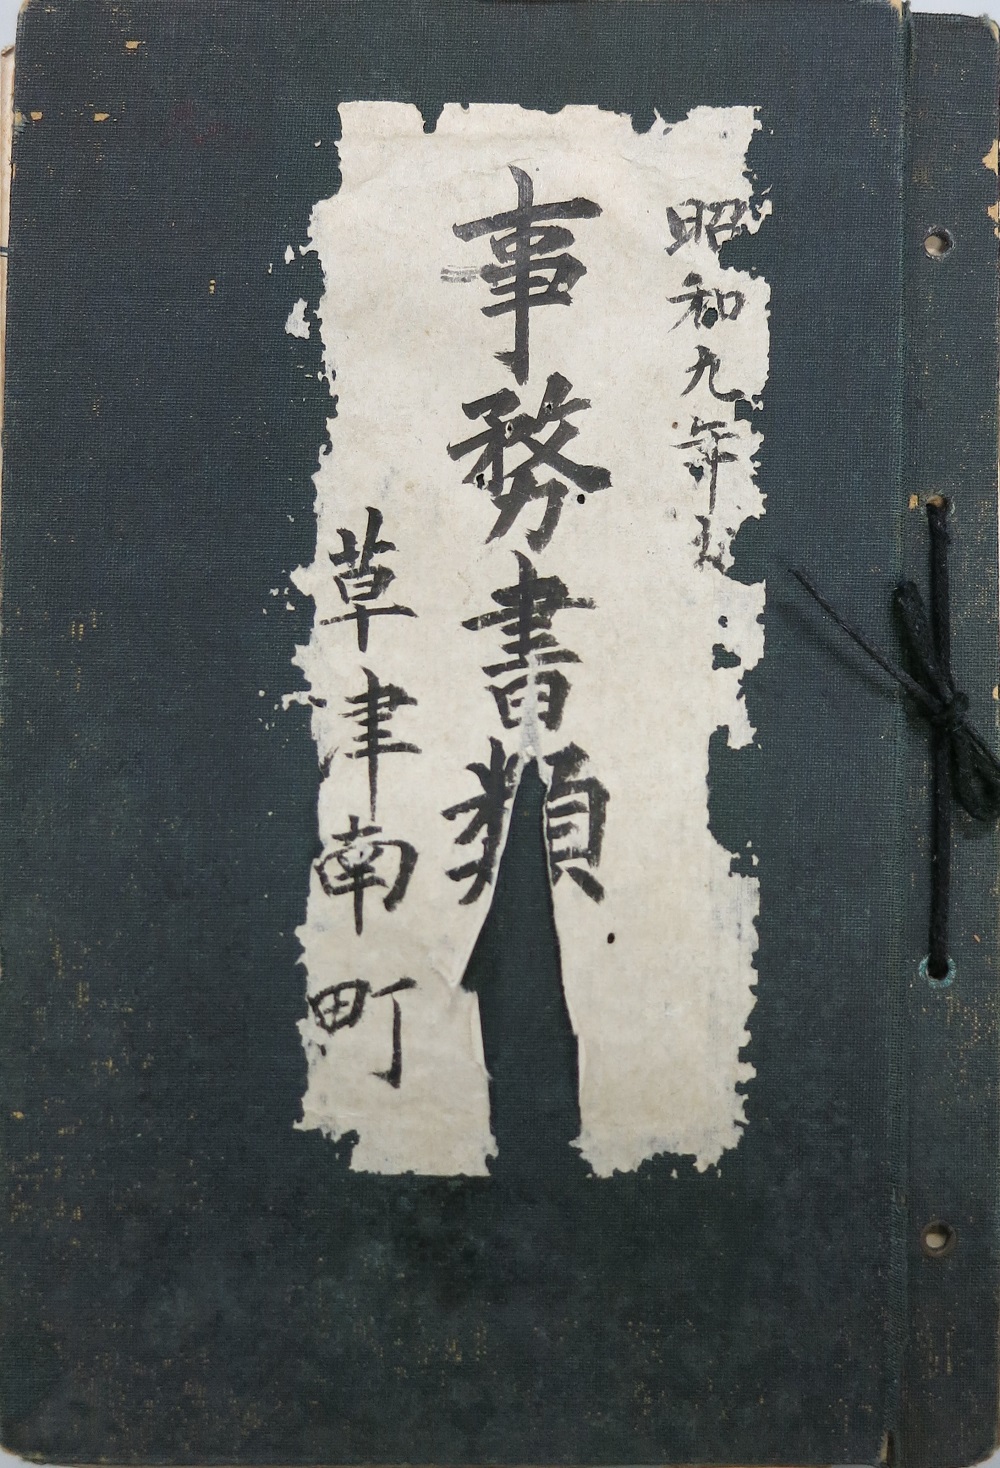 昭和九年
事務書類
草津南町